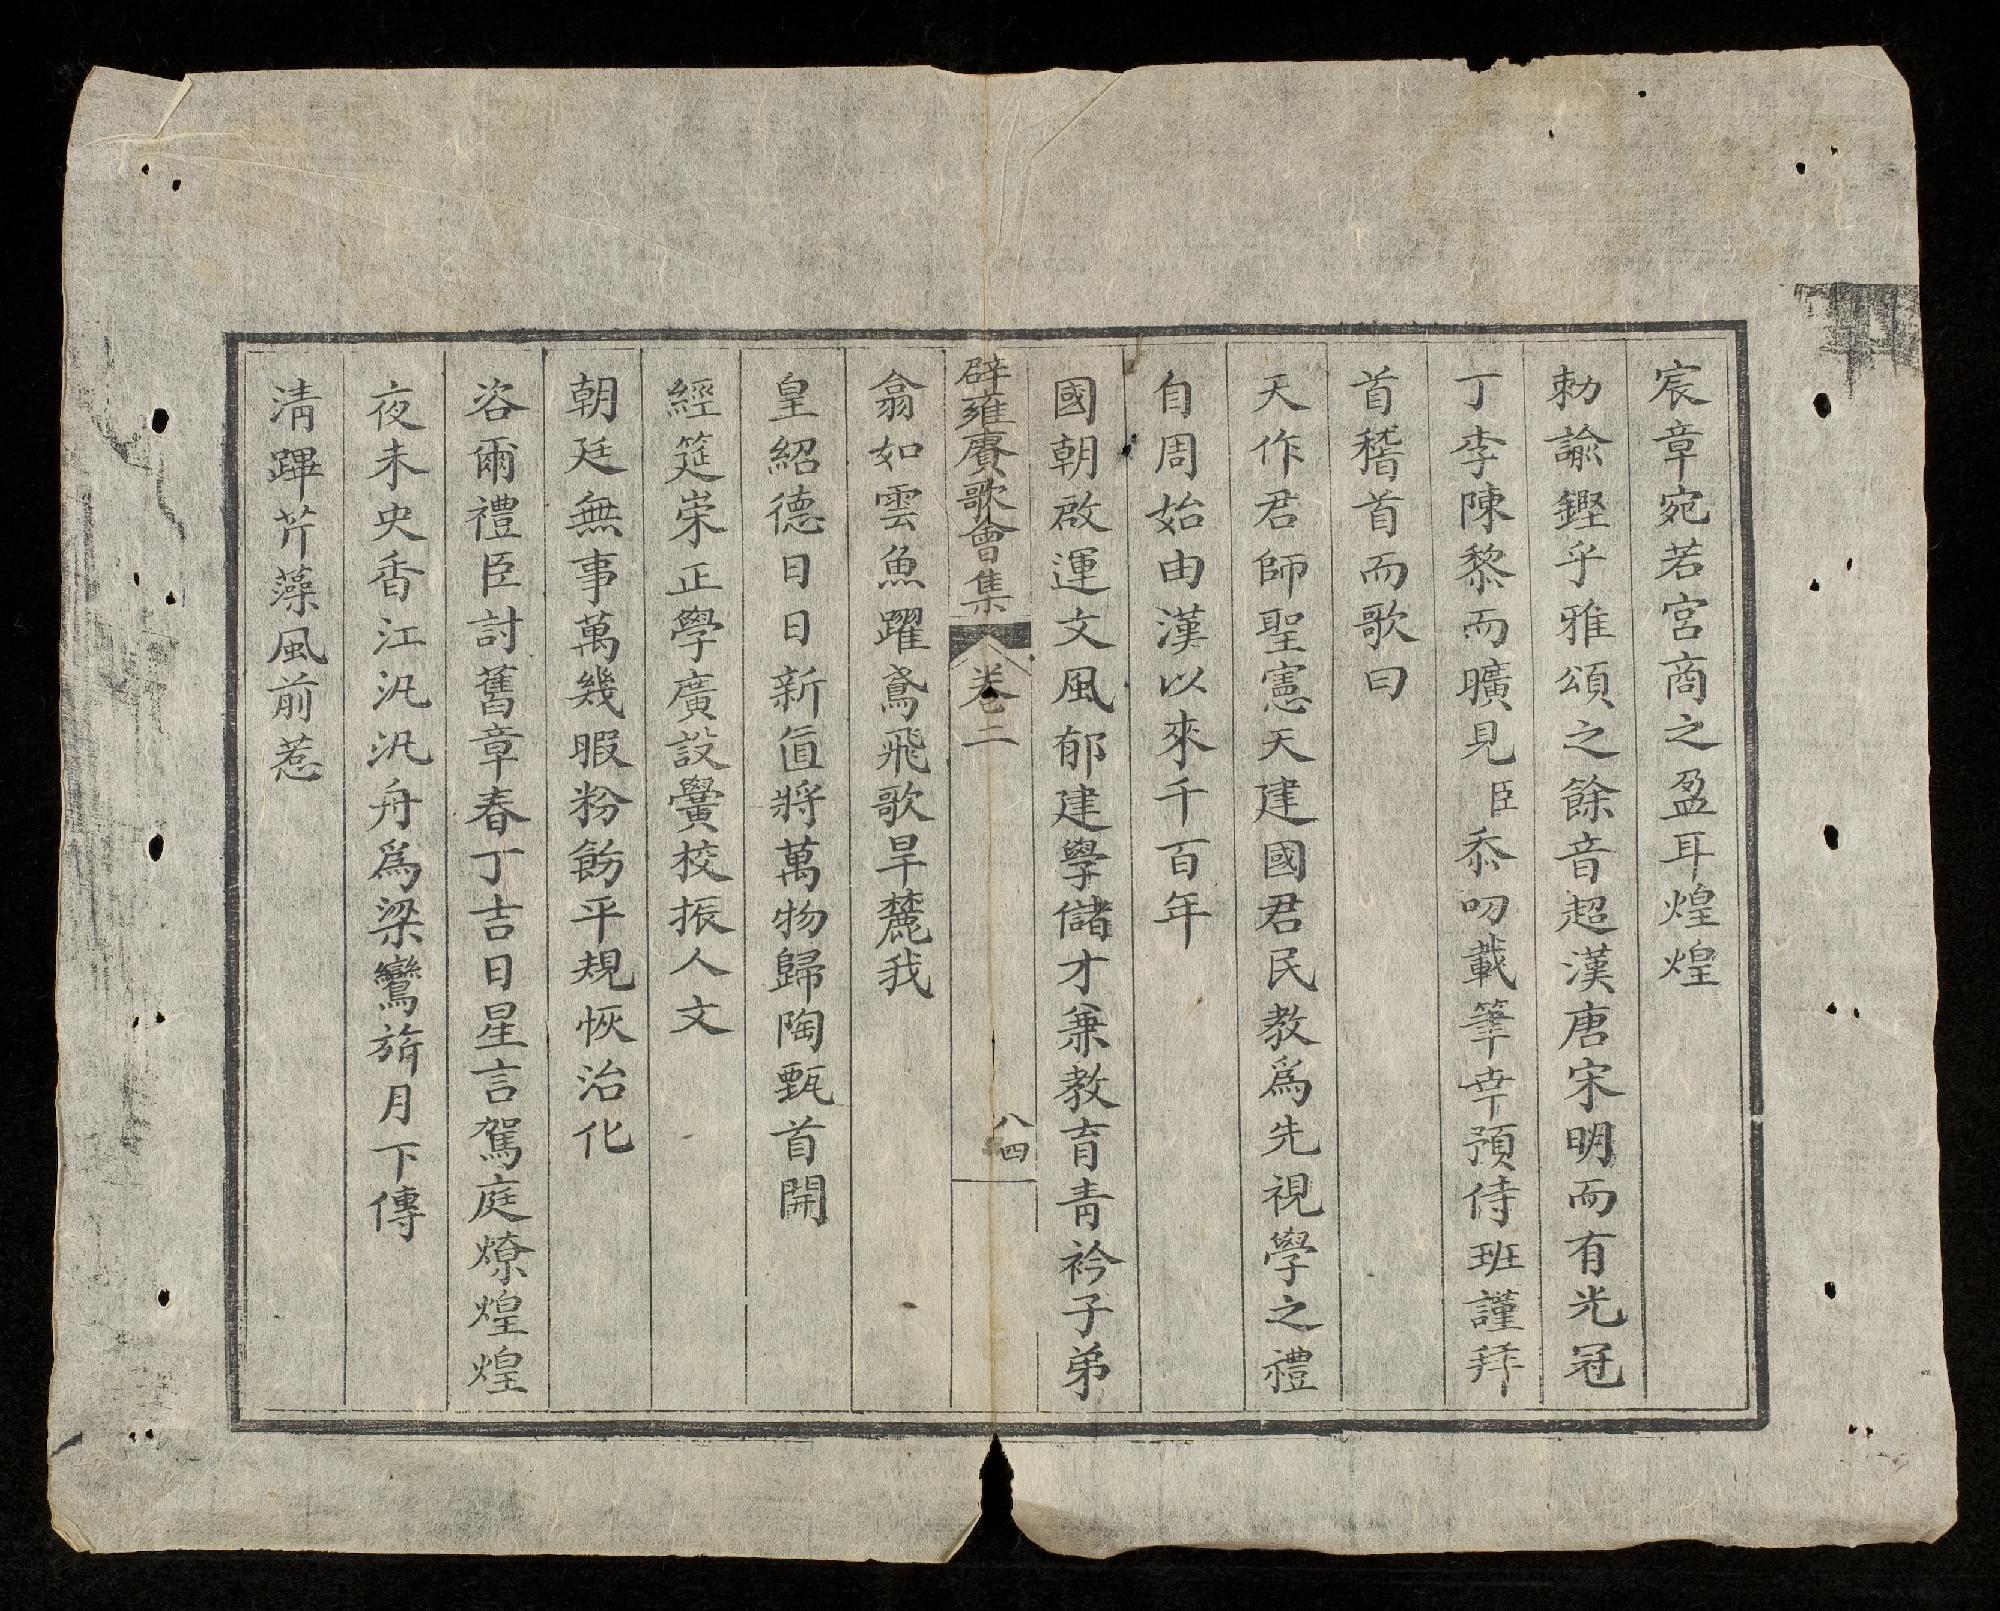 宸章宛若宮商之盈耳煌煌
勅諭鏗乎雅頌之餘音超漢唐宋明而有光冠
丁李陳黎而曠見臣忝叨載筆幸預侍班謹拜
首稽首而歌曰
天作君師聖憲天建國君民教爲先視學之禮
自周始由漢以來千百年
國朝啟運文風郁建學儲才兼教育青衿子弟
辟雍賡歌會集 卷二 八四
翕如雲魚躍鳶飛歌旱麓我
皇紹德日日新直將萬物歸陶甄首開
經筵崇正學廣設黌校振人文
朝廷無事萬幾暇粉飭平規恢治化
咨爾禮臣討舊章春丁吉日星言駕庭燎煌煌
夜未央香江汎汎舟爲梁鸞旂月下傳
清蹕芹藻風前惹